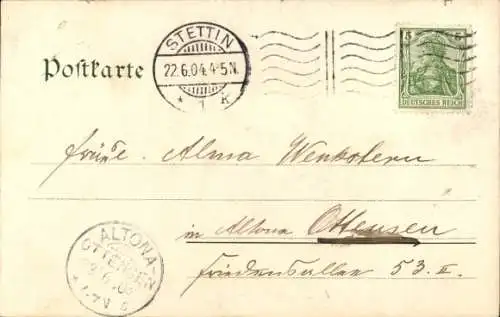 Postkarte
STETTIN
22.6.04.4-5N.
* 1 k
5 5
DEUTSCHES REICH
Alma
in Altona Ottensen
Friedensallee 53. II.
ALTONA-
OTTENSEN